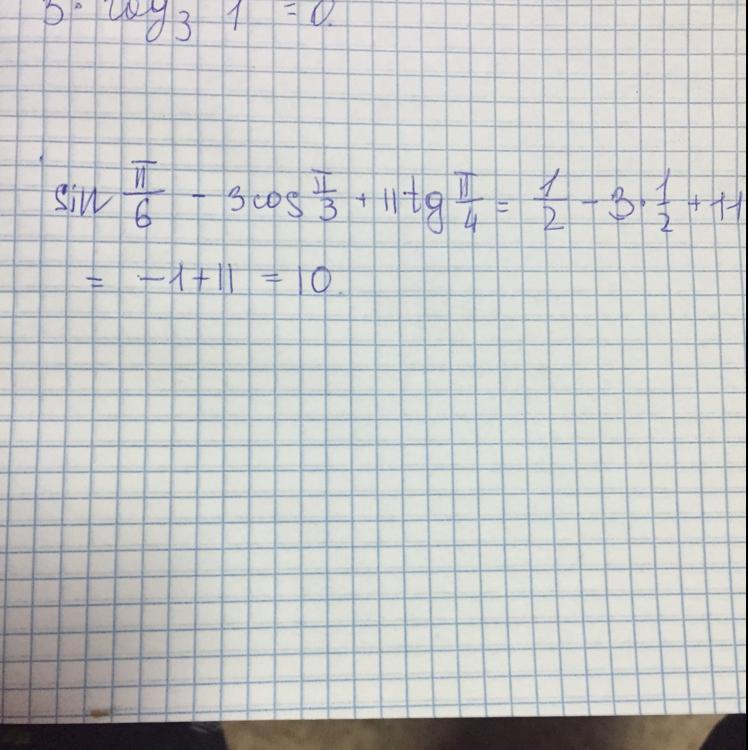 3 · log₃ 1 = 0.
sin π/6 - 3cos π/3 + 11tg π/4 = 1/2 - 3·1/2 + 11
= -1+11 = 10.